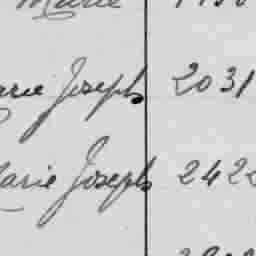 Marie
arie Joseph 2031
Marie Joseph 242